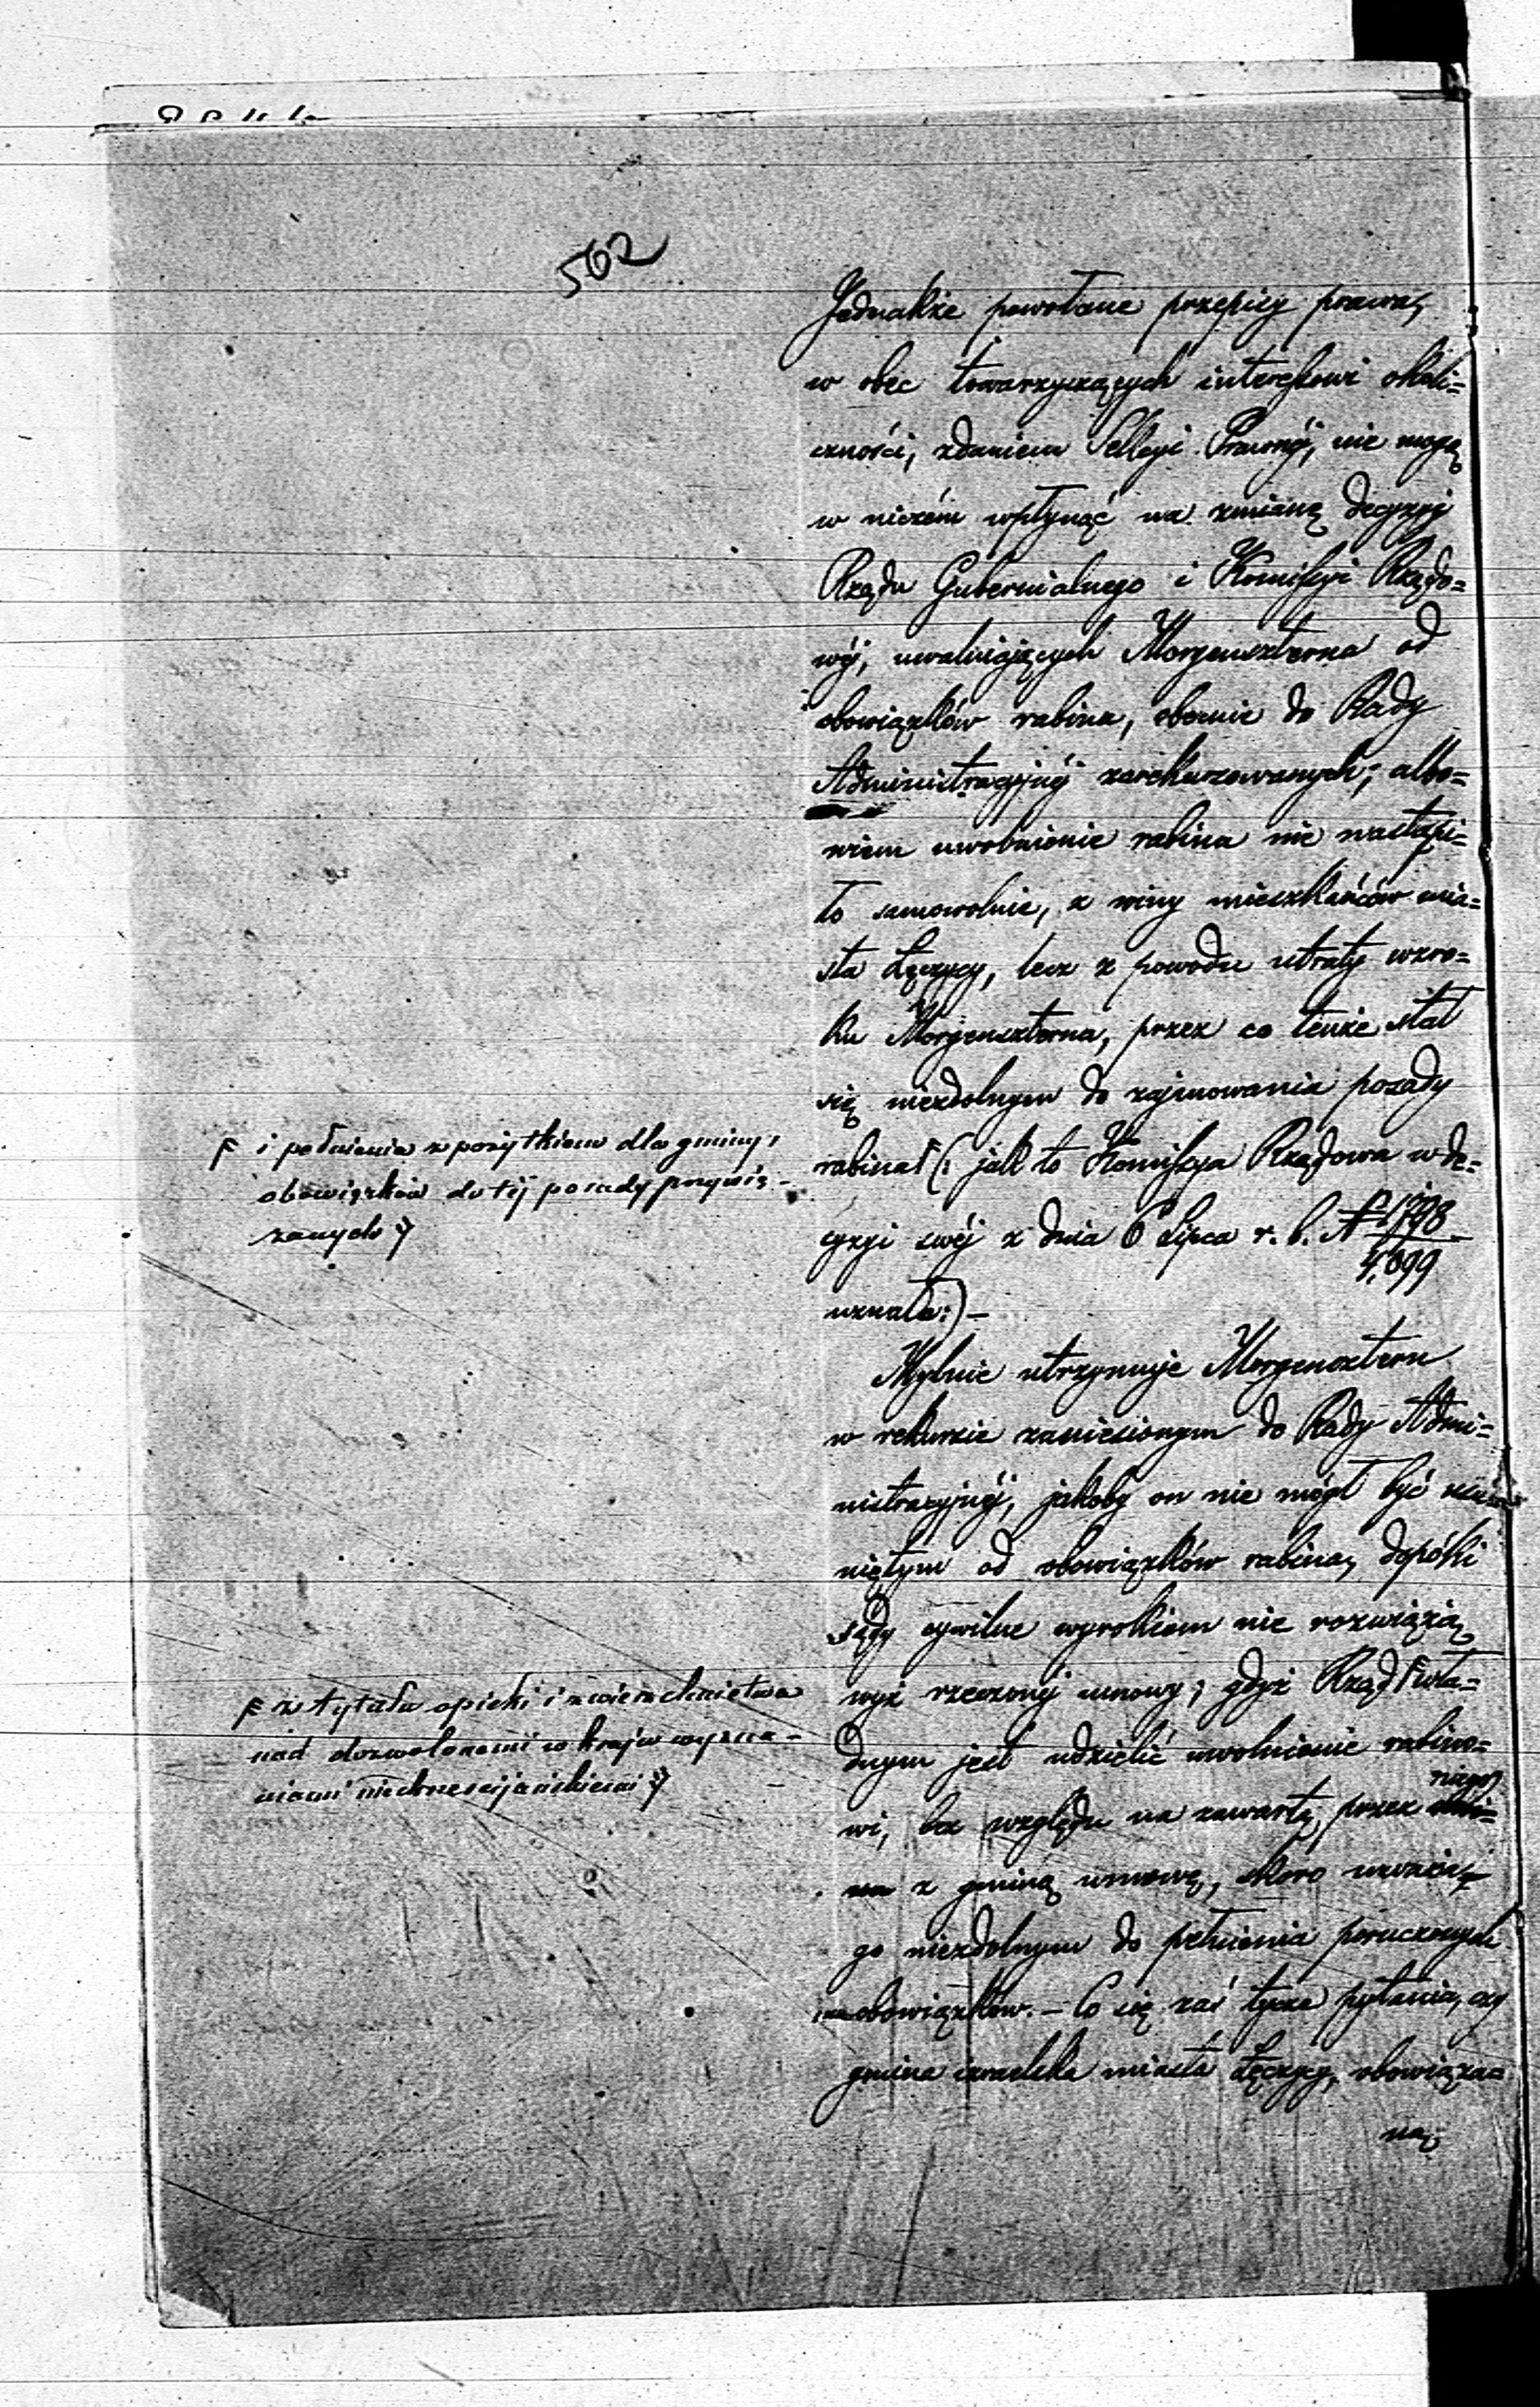 562
Jednakże powołane przepisy prawa,
w obec towarzyszących interesowi okoli=
czności, zdaniem Sekcyi Prawnéj, nie mogą
w niczém wpłynąć na zmianę decyzyj
Rządu Gubernialnego i Komissyi Rządo=
wéj, uwalniających Morgenszterna od
obowiązków rabina, obecnie do Rady
Administracyjnéj zarekurzowanych; albo=
wiem uwolnienie rabina nie nastąpi=
ło samowolnie, z winy mieszkańców mia=
sta Łęczycy, lecz z powodu utraty wzro=
ku Morgenszterna, przez co tenże stał
się niezdolnym do zajmowania posady
rabina F (: jak to Komissya Rządowa w de=
cyzyi swéj z dnia 6 Lipca r. b. N
4,899
uznała:) —
F i pełnienia z pożytkiem dla gminy,
obowiązków do téj posady przywią-
zanych
Mylnie utrzymuje Morgensztern
w rekursie zaniesionym do Rady Admi=
nistracyjnéj, jakoby on nie mógł być usu=
niętym od obowiązków rabina, dopóki
sądy cywilne wyrokiem nie rozwiążą
wyż rzeczonéj umowy; gdyż Rząd F wła=
dnym jest udzielić uwolnienie rabino=
wi, bez względu na zawartą przez niego
z gminą umowę, skoro uzna
go niezdolnym do pełnienia poruczonych
obowiązków. — Co się zaś tycze pytania, czy
gmina izraelska miasta Łęczycy, obowiąza=
na
F z tytułu opieki i zwierzchnictwa
nad dozwolonemi w kraju wyzna-
niami niechrześcijańskiemi